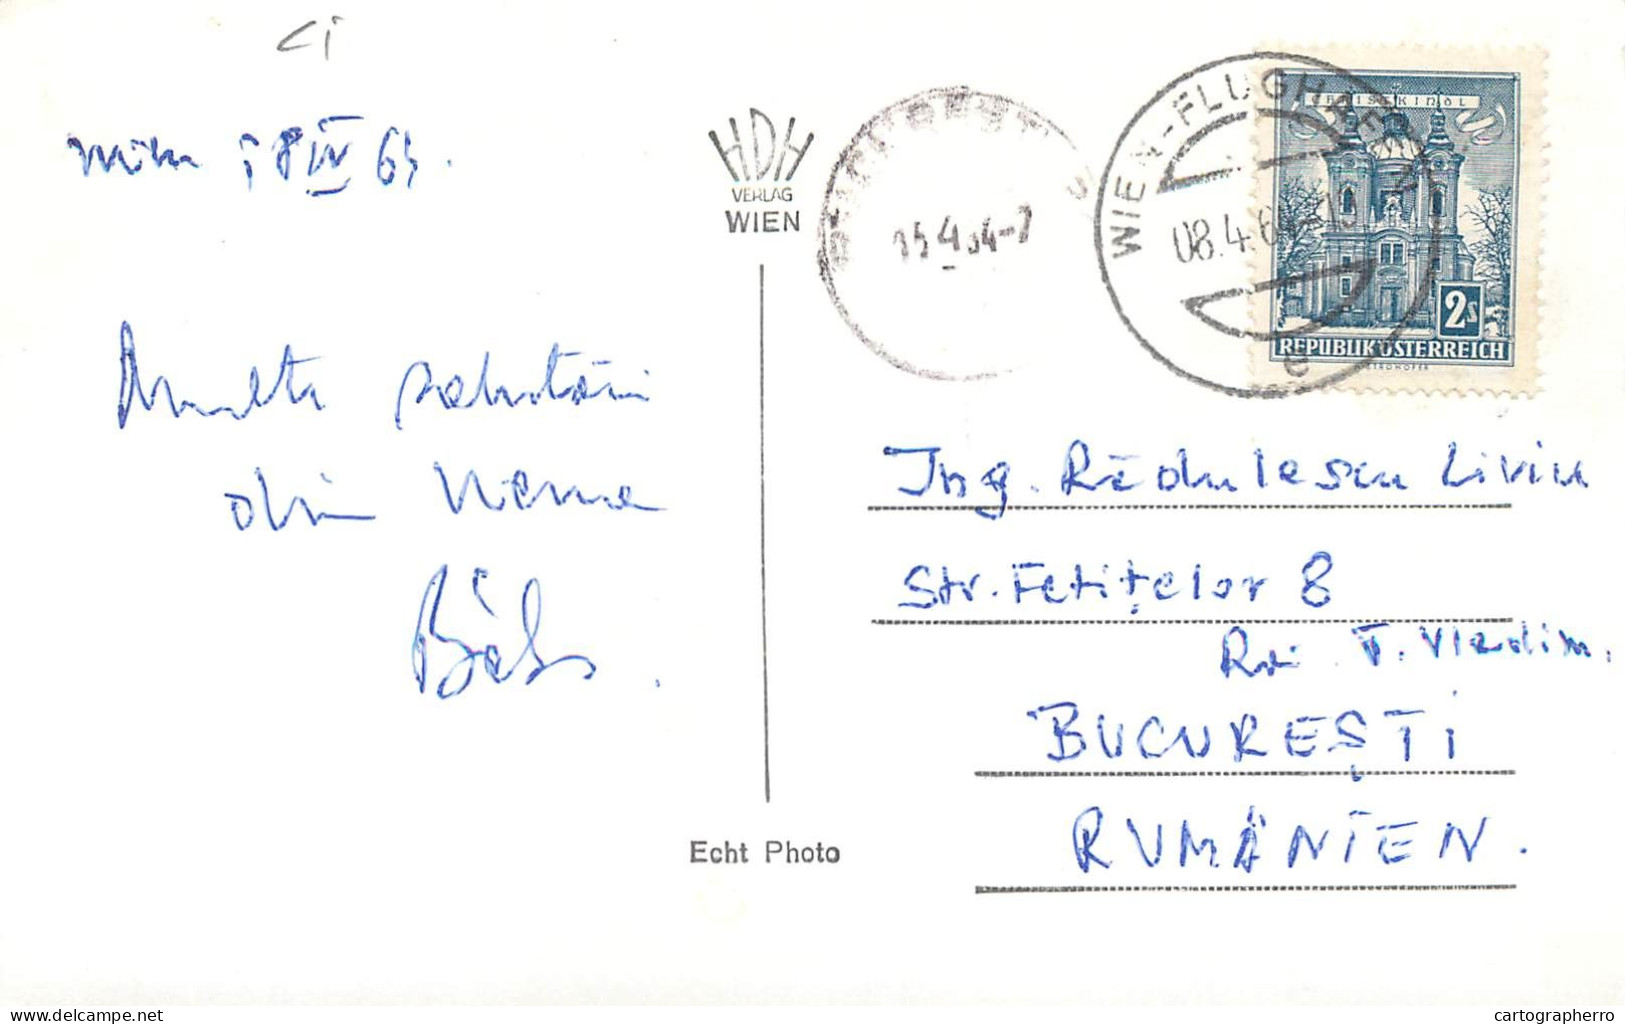 Wien, 8 IV 64.
Multe salutări
din Viena
HDH
VERLAG
WIEN
15.4.64-7
WIEN-FLUGHAFEN
08.4.64
CHRISTKINDL
2S
REPUBLIK ÖSTERREICH
Ing. Rădulescu Liviu
Str. Fetițelor 8
BUCUREȘTI
RUMÄNIEN.
Echt Photo
delcampe.net
cartographerro